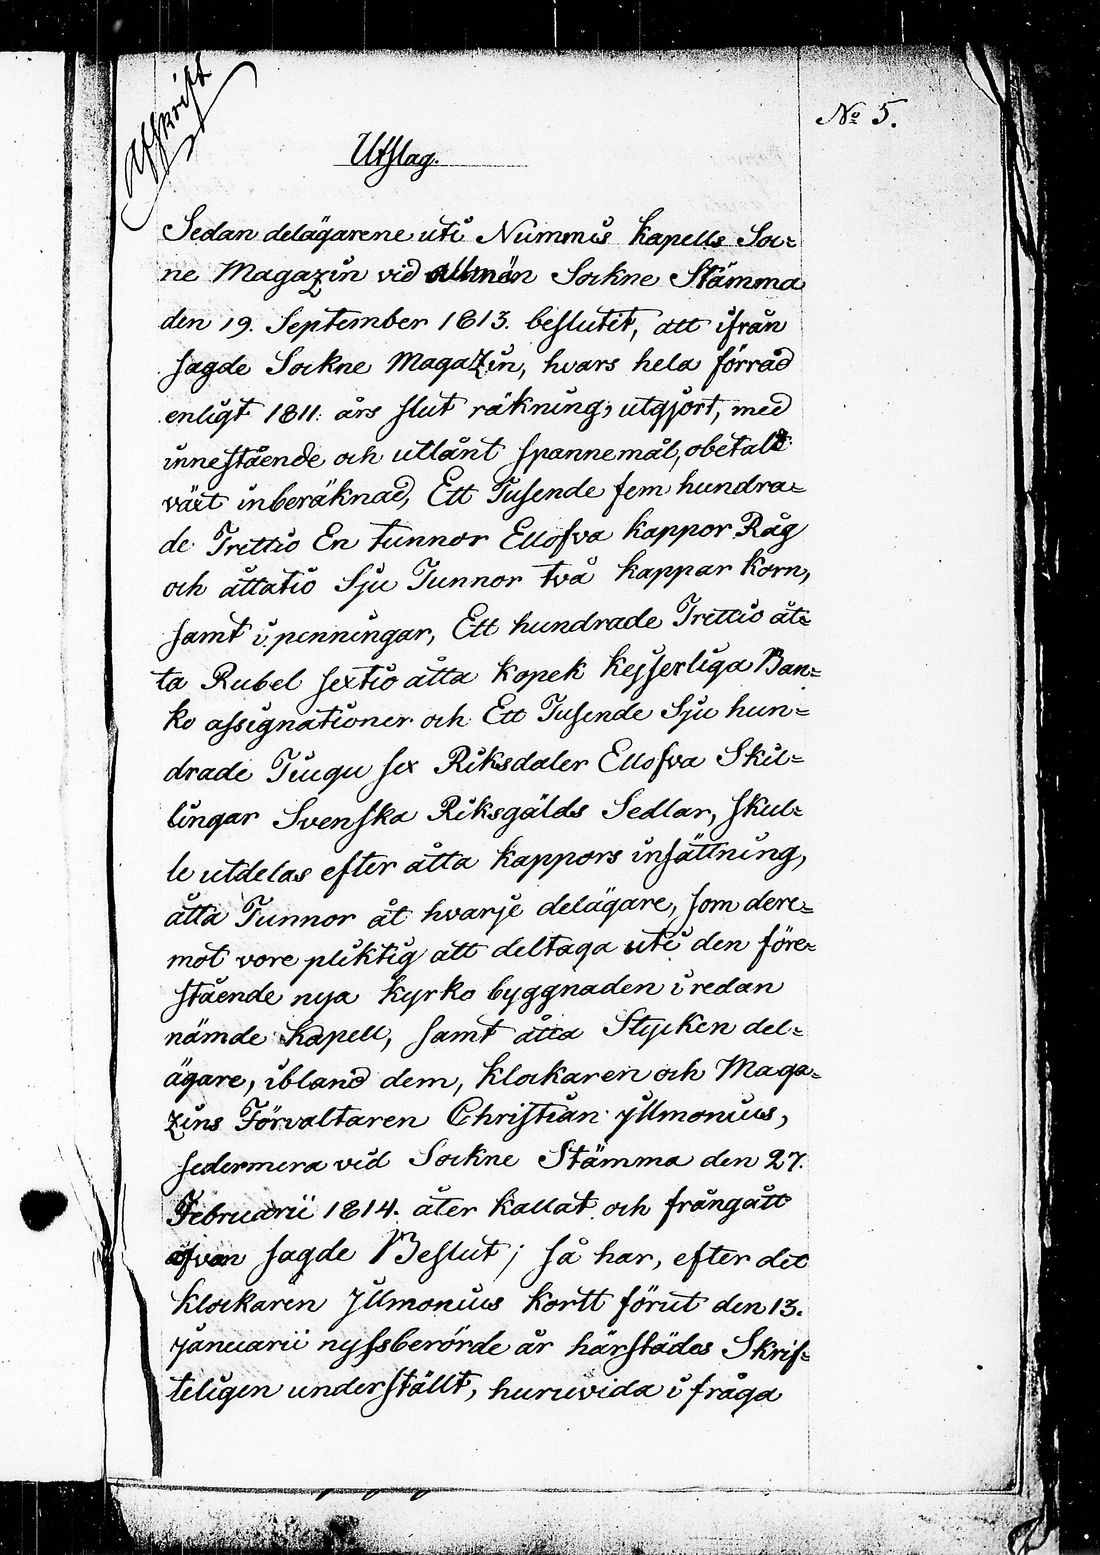 Afskrift
No 5.
Utslag.
Sedan delägarene uti Nummis Kapells Soc=
ne Magazin vid allmän Sockne Stämma
den 19. September 1813. beslutit, att ifrån
sagde Sockne Magazin, hvars hela förråd
enligt 1811. års slut räkning, utgjort, med
innestående och utlånt spannemål, obetalt
växt inberäknad, Ett Tusende fem hundra=
de Trettio En tunnor Ellofva kappor Råg
och åttatio Sju Tunnor två kappar Korn,
samt i penningar, Ett hundrade Trettio åt=
ta Rubel sextio åtta Kopek Kejserliga Ban=
ko assignationer och Ett Tusende Sju hun=
drade Tiugu sex Riksdaler Ellofva Skil=
lingar Svenska Riksgälds Sedlar, skul=
le utdelas efter åtta kappors insättning,
åtta Tunnor åt hvarje delägare, som dere=
mot vore pliktig att deltaga uti den före=
stående nya Kyrko byggnaden i redan
nämde Kapell, samt åtta Stycken del=
ägare, ibland dem, Klockaren och Maga=
zins Förvaltaren Christian Yllmonius,
sedermera vid Sockne Stämma den 27.
Februarii 1814. åter kallat och frångått
ofvan sagde Beslut; så har, efter det
Klockaren Yllmonius kortt förut den 13.
Januarii nyssberörde år härstädes Skrif=
teligen underställt, huruvida i fråga